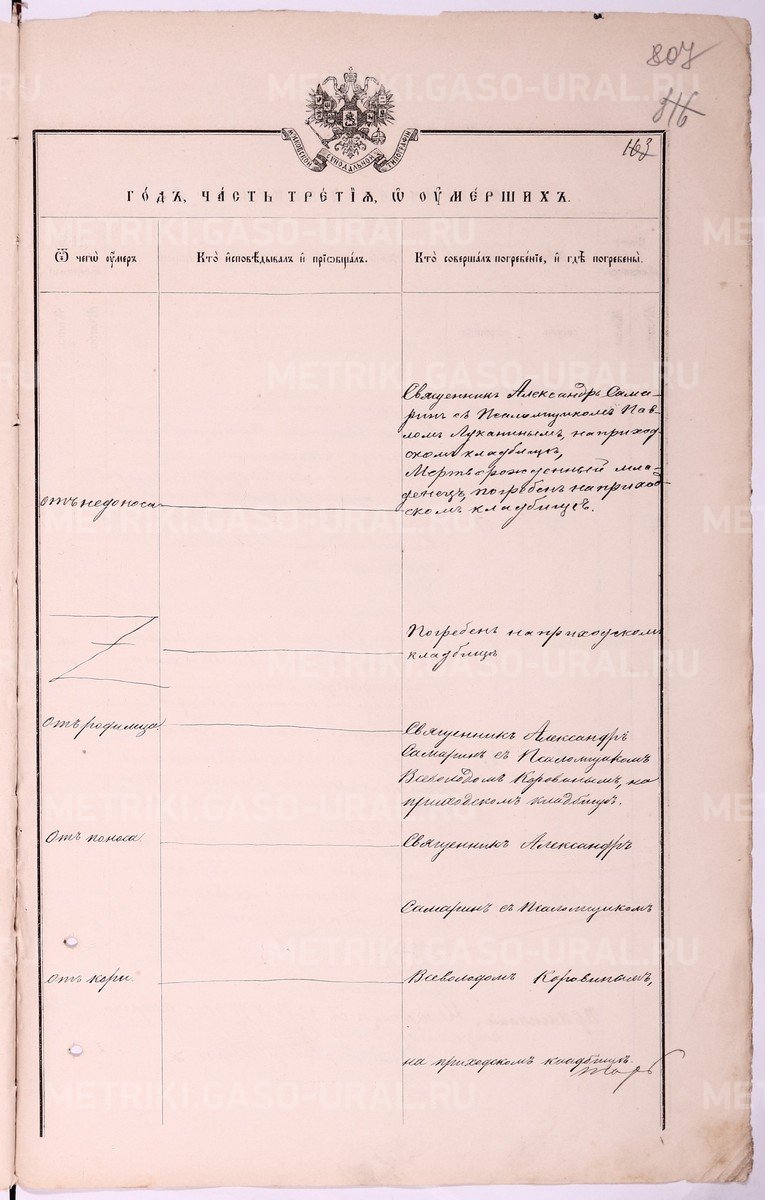 807
316
163
МОСКОВСКОЙ СѴНОДАЛЬНОЙ ТИПОГРАФІИ
ГОДЪ, ЧАСТЬ ТРЕТІЯ, Ѡ ОУМЕРШИХЪ.
Ѿ чегѡ оумеръ
Кто исповѣдывалъ и пріобщалъ.
Кто совершалъ погребеніе, и гдѣ погребены.
Священникъ Александръ Сама-
ринъ съ Псаломщикомъ Пав-
ломъ Луканинымъ, на приход-
скомъ кладбищѣ,
Мертворожденный мла-
денецъ, погребенъ на приход-
скомъ кладбищѣ.
отъ недоноса
Погребенъ на приходскомъ
кладбищѣ
Отъ родимца
Священникъ Александръ
Самаринъ съ Псаломщикомъ
Всеволодомъ Коровинымъ, на
приходскомъ кладбищѣ.
Отъ поноса.
Священникъ Александръ
Самаринъ съ Псаломщикомъ
отъ кори.
Всеволодомъ Коровинымъ,
на приходскомъ кладбищѣ.
METRIKI.GASO-URAL.RU